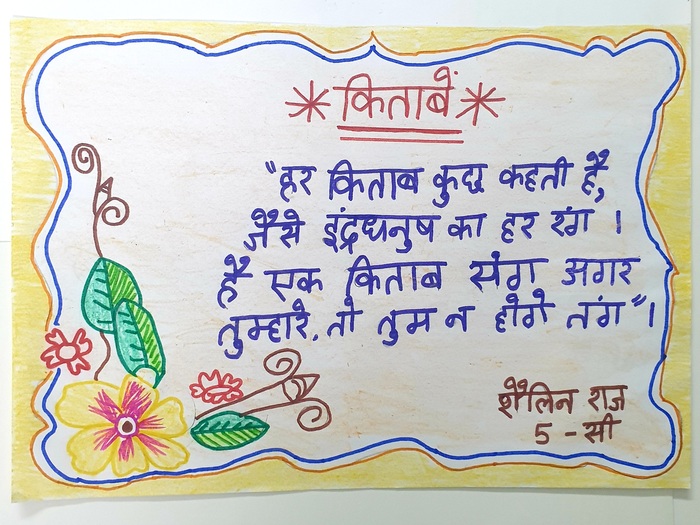 * किताबें *
"हर किताब कुछ कहती है,
जैसे इंद्रधनुष का हर रंग ।
है एक किताब संग अगर
तुम्हारे, तो तुम न होगे तंग"।
शैलिन राज
5 - सी